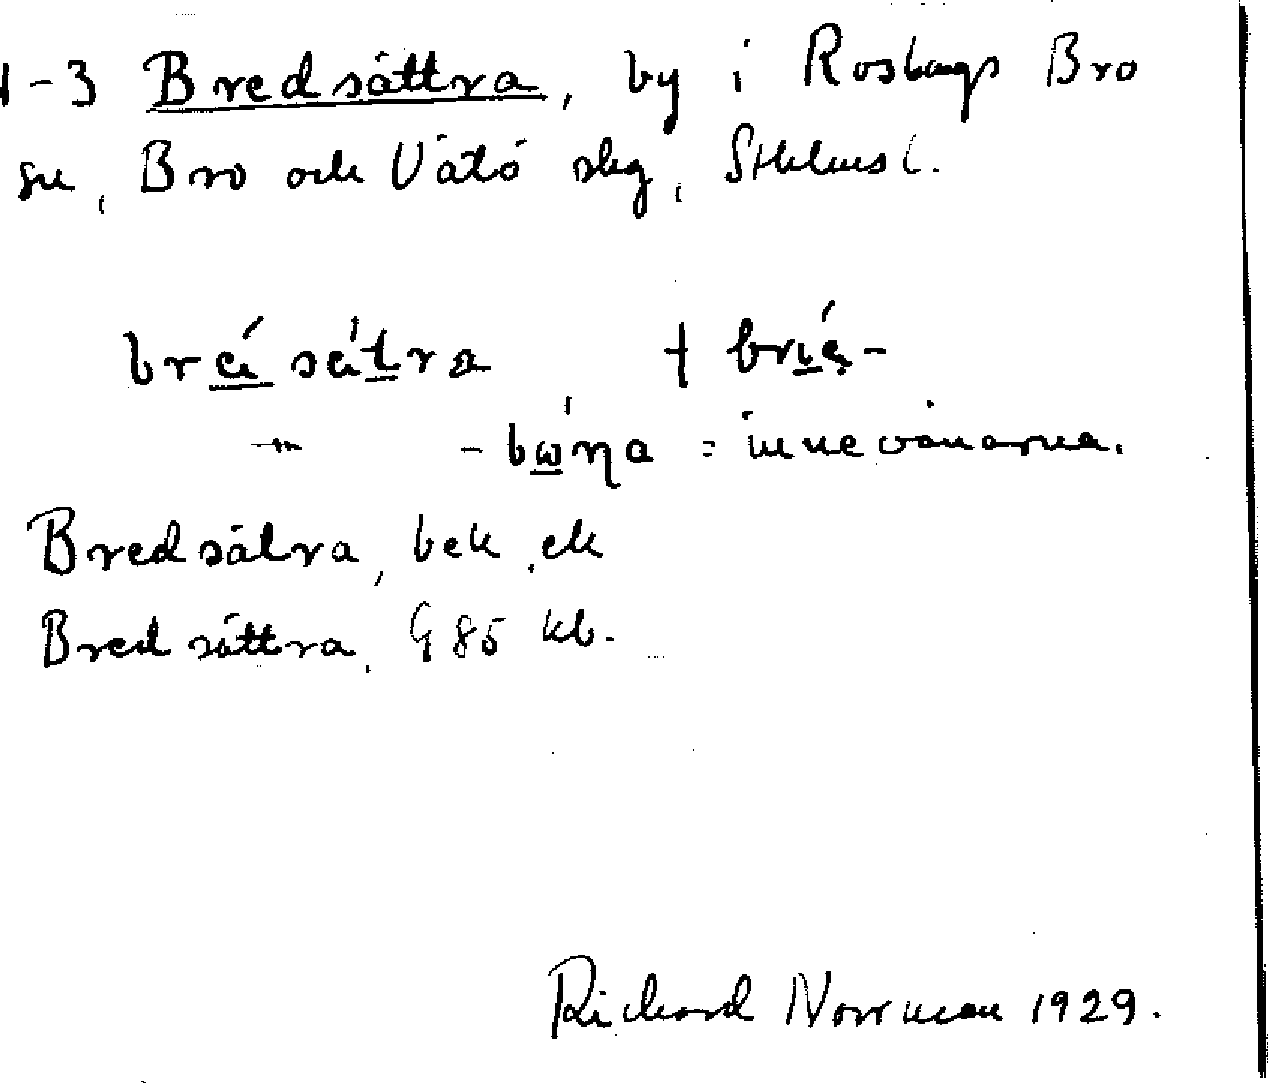 1-3 Bredsättra, by i Roslags Bro
sn, Bro och Vätö skg, Sthlms l.
sätra
- = innevånarna.
Bredsätra, bek, ek
Bredsättra, G 85 kb.
Richard Norrman 1929.